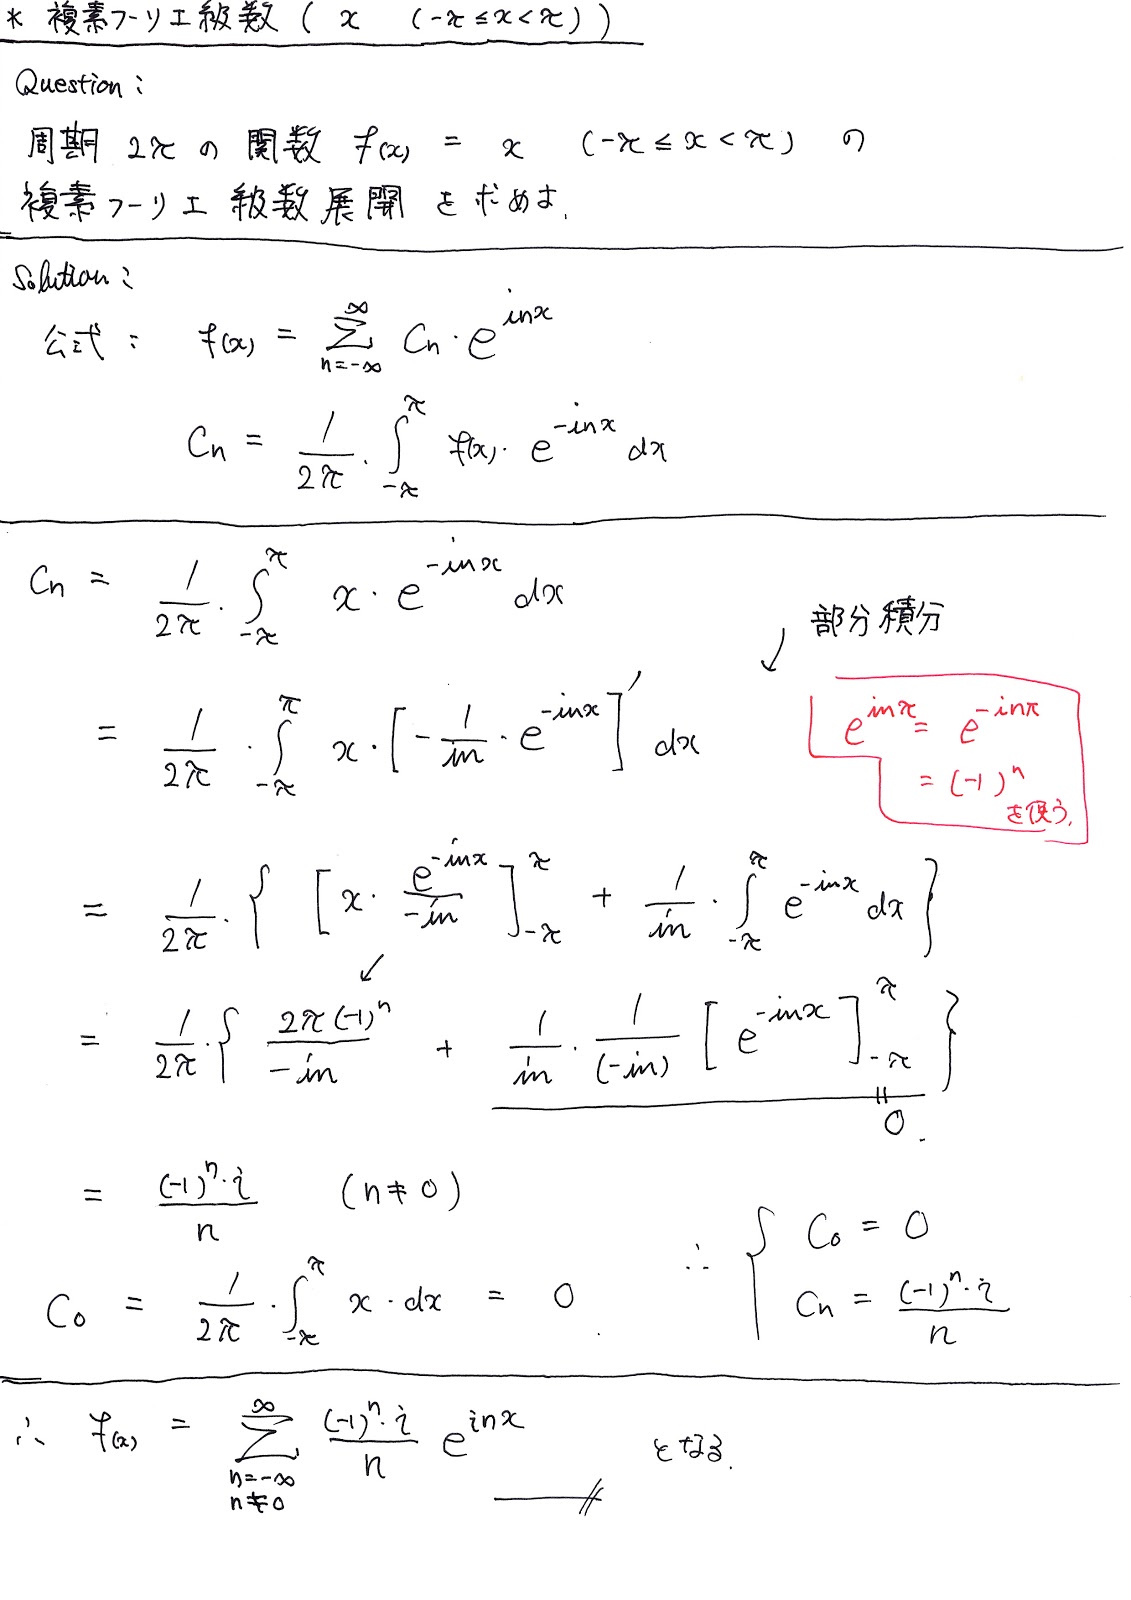 * 複素フーリエ級数 ( x (-π ≤ x < π) )
Question :
周期 2π の 関数 f(x) = x (-π ≤ x < π) の
複素フーリエ 級数展開 を求めよ.
Solution :
公式 : f(x) = Σ_{n=-∞}^{∞} Cn · e^{inx}
Cn = 1/2π · ∫_{-π}^{π} f(x) · e^{-inx} dx
Cn = 1/2π · ∫_{-π}^{π} x · e^{-inx} dx
部分積分
= 1/2π · ∫_{-π}^{π} x · [ - 1/in · e^{-inx} ]' dx
e^{inπ} = e^{-inπ}
= (-1)^n
を使う.
= 1/2π · { [ x · e^{-inx}/-in ]_{-π}^{π} + 1/in · ∫_{-π}^{π} e^{-inx} dx }
= 1/2π · { 2π(-1)^n/-in + 1/in · 1/(-in) [ e^{-inx} ]_{-π}^{π} }
= 0.
= (-1)^n · i/n (n ≠ 0)
C0 = 1/2π · ∫_{-π}^{π} x · dx = 0.
∴ { C0 = 0
Cn = (-1)^n · i/n
∴ f(x) = Σ_{n=-∞, n≠0}^{∞} (-1)^n · i/n e^{inx} となる.